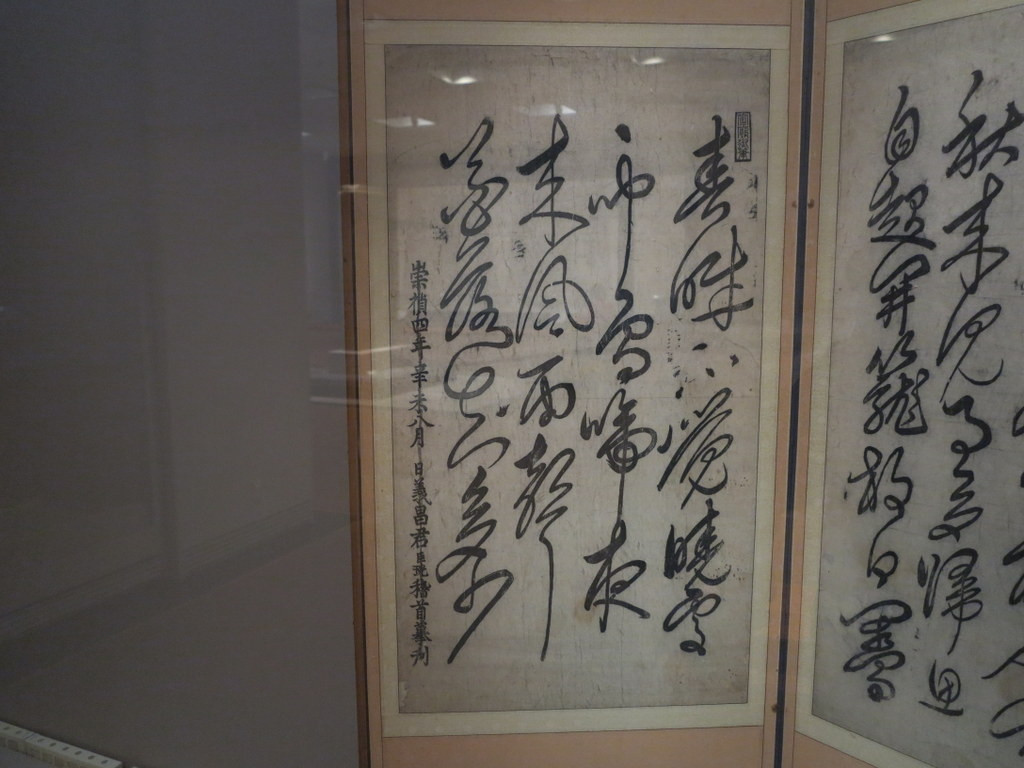 秋來見月多歸思
自起開籠放白鷴
春眠不覺曉處
々聞鳥啼夜
來風雨聲
花落知多少
崇禎四年辛未八月 日義昌君臣珖稽首摹刋